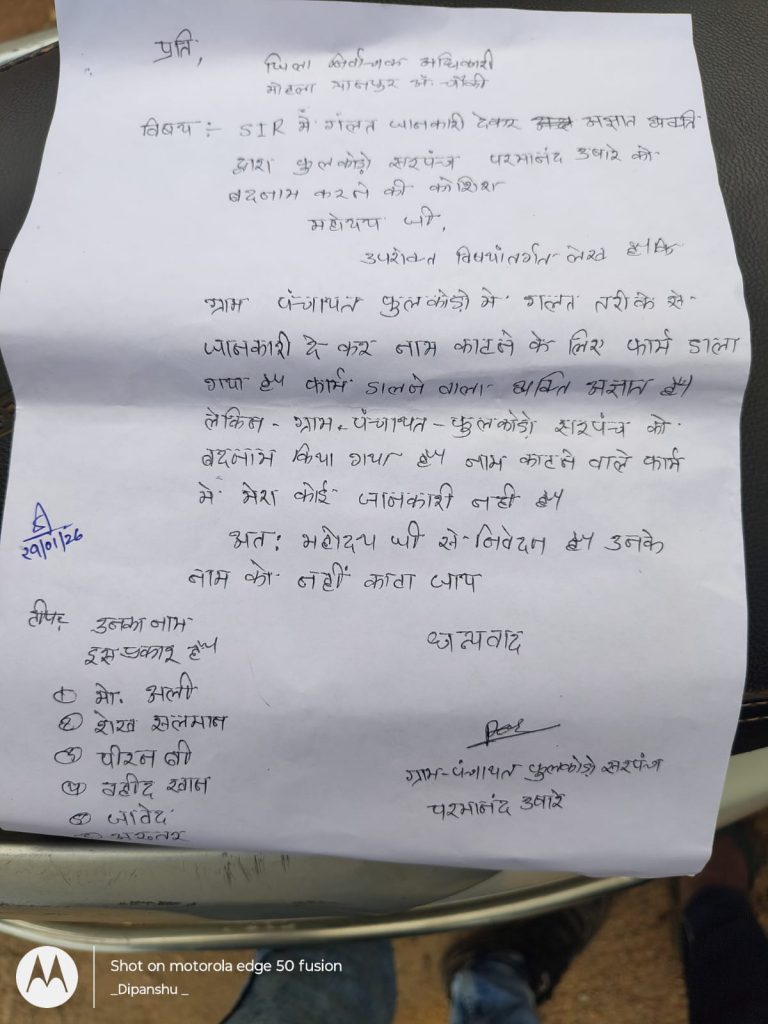 प्रति,
जिला निर्वाचक अधिकारी
मोहला मानपुर अं. चौकी
विषय :- SIR में गलत जानकारी देकर अज्ञात व्यक्ति
द्वारा फुलकोड़ो सरपंच परमानंद उषारे को
बदनाम करने की कोशिश
महोदय जी,
उपरोक्त विषयांतर्गत लेख है कि
ग्राम पंचायत फुलकोड़ो मे गलत तरीके से
जानकारी दे कर नाम काटने के लिए फार्म डाला
गया है फार्म डालने वाला व्यक्ति अज्ञात है
लेकिन - ग्राम - पंचायत - फुलकोड़ो सरपंच को
बदनाम किया गया है नाम काटने वाले फार्म
मे मेरा कोई जानकारी नही है
अत: महोदय जी से निवेदन है उनके
नाम को नहीं काटा जाय
29/01/26
टीप:
उनका नाम
इस प्रकार है
धन्यवाद
① मो. अली
② शेख सलमान
③ पीरन बी
④ वहीद खान
⑤ जावेद
अख्तर
ग्राम-पंचायत फुलकोड़ो सरपंच
परमानंद उषारे
Shot on motorola edge 50 fusion
_Dipanshu _